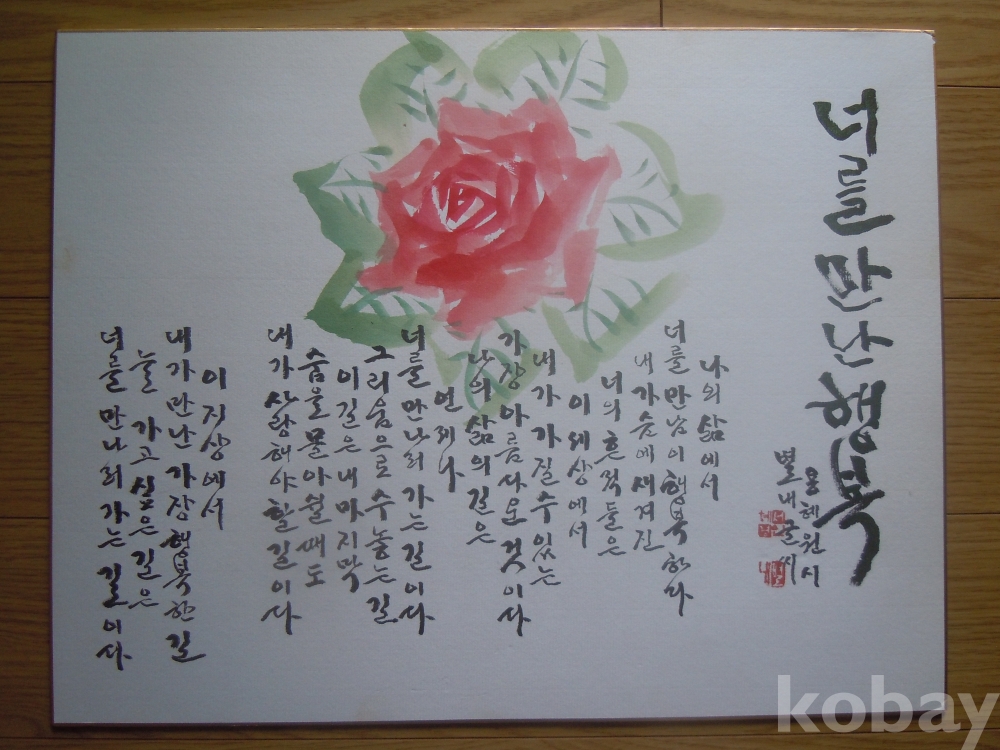 너를 만난 행복
용혜원 시
별내 글씨
나의 삶에서
너를 만남이 행복하다
내 가슴에 새겨진
너의 흔적들은
이 세상에서
내가 가질 수 있는
가장 아름다운 것이다
나의 삶의 길은
언제나
너를 만나러 가는 길이다
그리움으로 수놓는 길
이 길은 내 마지막
숨을 몰아쉴 때도
내가 사랑해야 할 길이다
이 지상에서
내가 만난 가장 행복한 길
늘 가고 싶은 길은
너를 만나러 가는 길이다
kobay